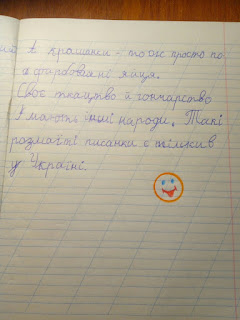 А крашанки - просто по
фарбовані яйця.
Своє ткацтво й гончарство
мають інші народи. Такі
розмаїті писанки є тільки в
у Україні.